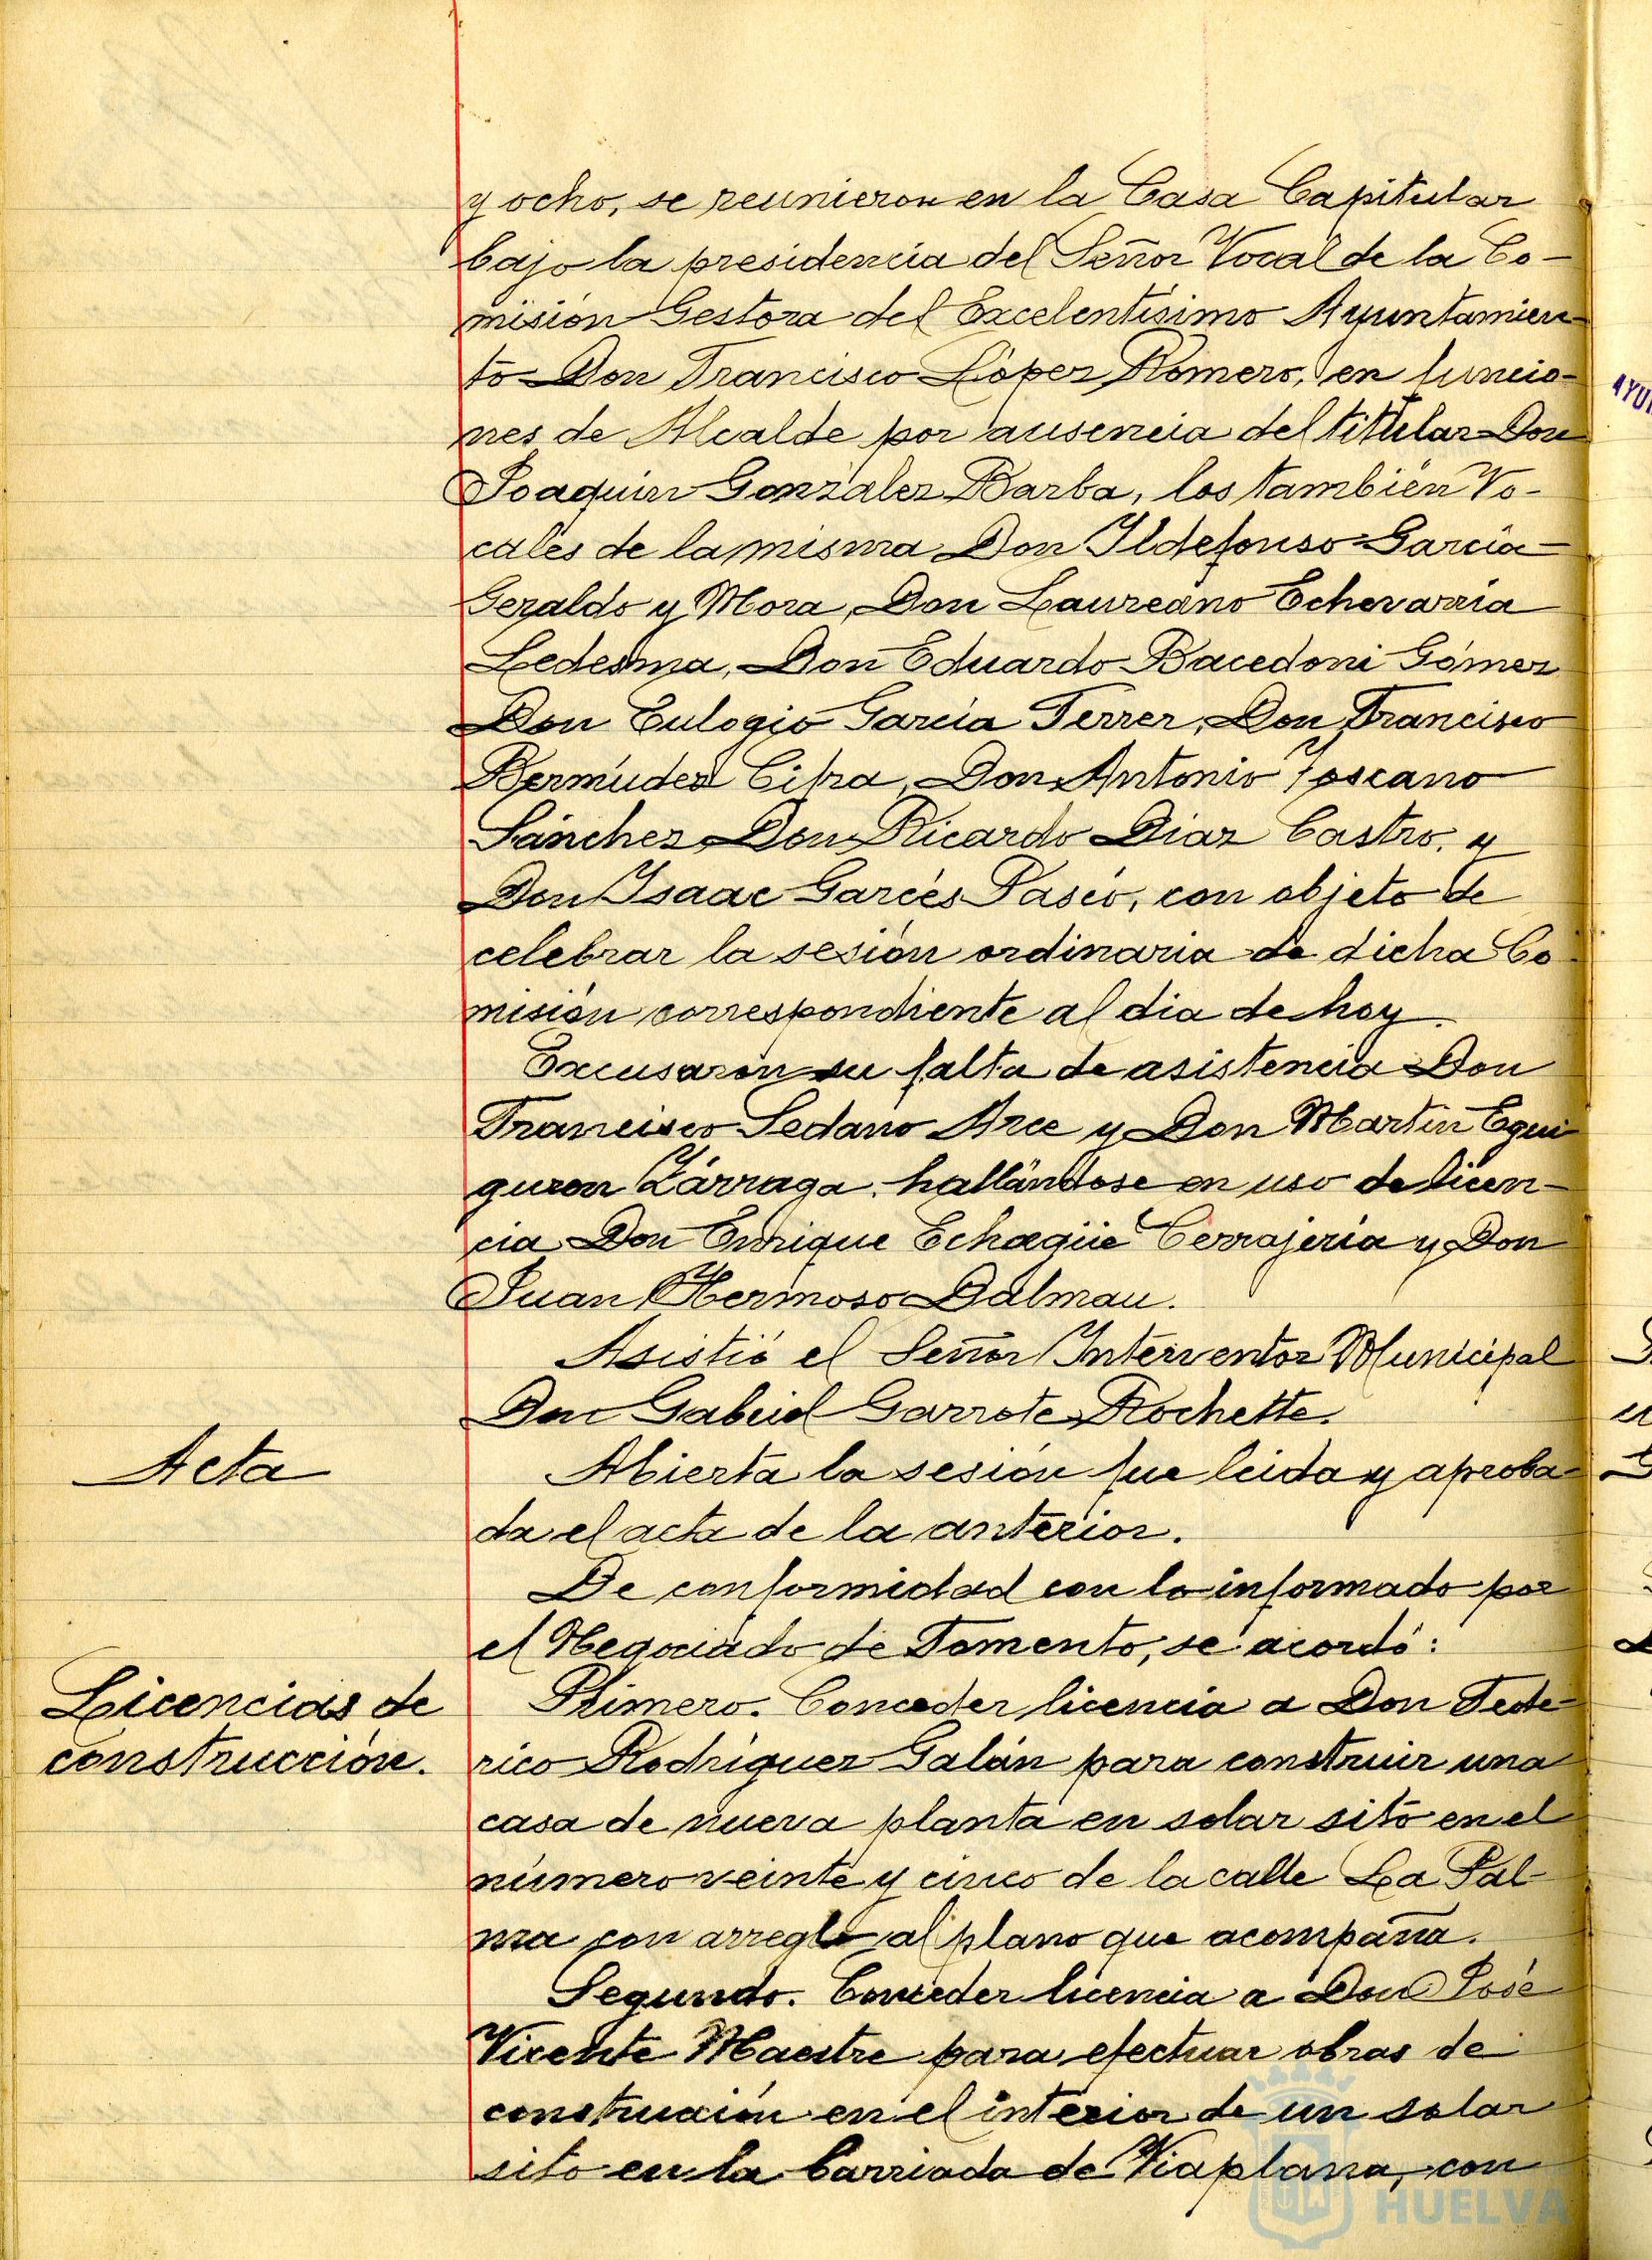 y ocho, se reunieron en la Casa Capitular
bajo la presidencia del Señor Vocal de la Co-
misión Gestora del Excelentísimo Ayuntamien-
to Don Francisco López Romero, en funcio-
nes de Alcalde por ausencia del titular Don
Joaquín González Barba, los también Vo-
cales de la misma Don Ildefonso García
Geraldo y Mora, Don Laureano Echevarría
Ledesma, Don Eduardo Bacedoni Gómez
Don Eulogio García Ferrer, Don Francisco
Bermúdez Cifra, Don Antonio Toscano
Sánchez, Don Ricardo Diaz Castro, y
Don Isaac Garcés Paseo, con objeto de
celebrar la sesión ordinaria de dicha Co-
misión correspondiente al dia de hoy.
Excusaron su falta de asistencia Don
Francisco Sedano Arce y Don Martín Egui-
guren Zárraga, hallándose en uso de licen-
cia Don Enrique Echagüe Cerrajería y Don
Juan Hermoso Dalmau.
Asistió el Señor Interventor Municipal
Don Gabriel Garrote Rochette.
Acta
Abierta la sesión fue leida y aproba-
da el acta de la anterior.
De conformidad con lo informado por
el Negociado de Fomento, se acordó:
Licencias de
construcción.
Primero. Conceder licencia a Don Fede-
rico Rodríguez Galán para construir una
casa de nueva planta en solar sito en el
número veinte y cinco de la calle La Pal-
ma con arreglo al plano que acompaña.
Segundo. Conceder licencia a Don José
Vicente Maestre para efectuar obras de
construcción en el interior de un solar
sito en la barriada de Viaplana, con
HUELVA